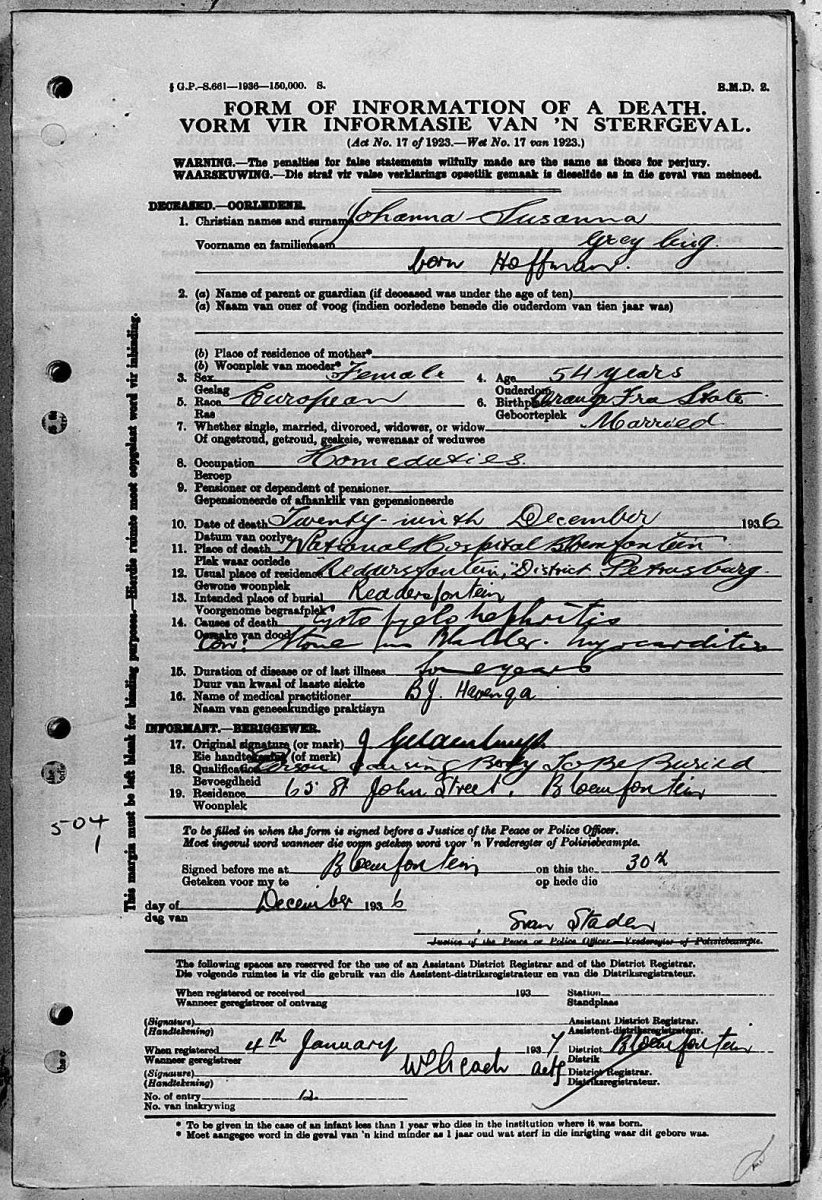 § G.P.-S.661—1936—150,000. S. B.M.D. 2.
FORM OF INFORMATION OF A DEATH.
VORM VIR INFORMASIE VAN 'N STERFGEVAL.
(Act No. 17 of 1923.—Wet No. 17 van 1923.)
WARNING.—The penalties for false statements wilfully made are the same as those for perjury.
WAARSKUWING.—Die straf vir valse verklarings opsetlik gemaak is dieselfde as in die geval van meineed.
DECEASED.—OORLEDENE.
1. Christian names and surname Johanna Susanna
Voorname en familienaam Greyling
born Hoffman.
2. (a) Name of parent or guardian (if deceased was under the age of ten)
(a) Naam van ouer of voog (indien oorledene benede die ouderdom van tien jaar was)
(b) Place of residence of mother*
(b) Woonplek van moeder*
3. Sex Female 4. Age 54 years
Geslag Ouderdom
5. Race European 6. Birthplace Orange Fra State
Ras Geboorteplek
7. Whether single, married, divorced, widower, or widow Married
Of ongetroud, getroud, geskeie, wewenaar of weduwee
8. Occupation Home duties
Beroep
9. Pensioner or dependent of pensioner
Gepensioneerde of afhanklik van gepensioneerde
10. Date of death Twenty-ninth December 1936
Datum van oorlye
11. Place of death National Hospital Bloemfontein
Plek waar oorlede
12. Usual place of residence "Reddersfontein," District Petrusburg.
Gewone woonplek
13. Intended place of burial Reddersfontein
Voorgenome begraafplek
14. Causes of death Cysto pyelo nephritis
Oorsake van dood Con: Stone in Bladder. Myocarditis
15. Duration of disease or of last illness for years
Duur van kwaal of laaste siekte
16. Name of medical practitioner B.J. Havenga
Naam van geneeskundige praktisyn
INFORMANT.—BERIGGEWER.
17. Original signature (or mark) J
Eie handtekening (of merk)
18. Qualification Person Causing Body To Be Buried
Bevoegdheid
19. Residence 65 St John Street. Bloemfontein
Woonplek
To be filled in when the form is signed before a Justice of the Peace or Police Officer.
Moet ingevul word wanneer die vorm geteken word voor 'n Vrederegter of Polisiebeampte.
Signed before me at Bloemfontein on this the 30th
Geteken voor my te op hede die
day of December 1936
dag van
van Staden
Justice of the Peace or Police Officer—Vrederegter of Polisiebeampte.
The following spaces are reserved for the use of an Assistant District Registrar and of the District Registrar.
Die volgende ruimtes is vir die gebruik van die Assistent-distriksregistrateur en van die Distriksregistrateur.
When registered or received 193 Station
Wanneer geregistreer of ontvang Standplaas
(Signature) Assistant District Registrar.
(Handtekening) Assistent-distriksregistrateur.
When registered 4th January 1937 District Bloemfontein
Wanneer geregistreer Distrik
(Signature) actg District Registrar.
(Handtekening) Distriksregistrateur.
No. of entry 12
No. van inskrywing
* To be given in the case of an infant less than 1 year who dies in the institution where it was born.
* Moet aangegee word in die geval van 'n kind minder as 1 jaar oud wat sterf in die inrigting waar dit gebore was.
This margin must be left blank for binding purposes.—Hierdie ruimte moet oopgelaat word vir inbinding.
504
1